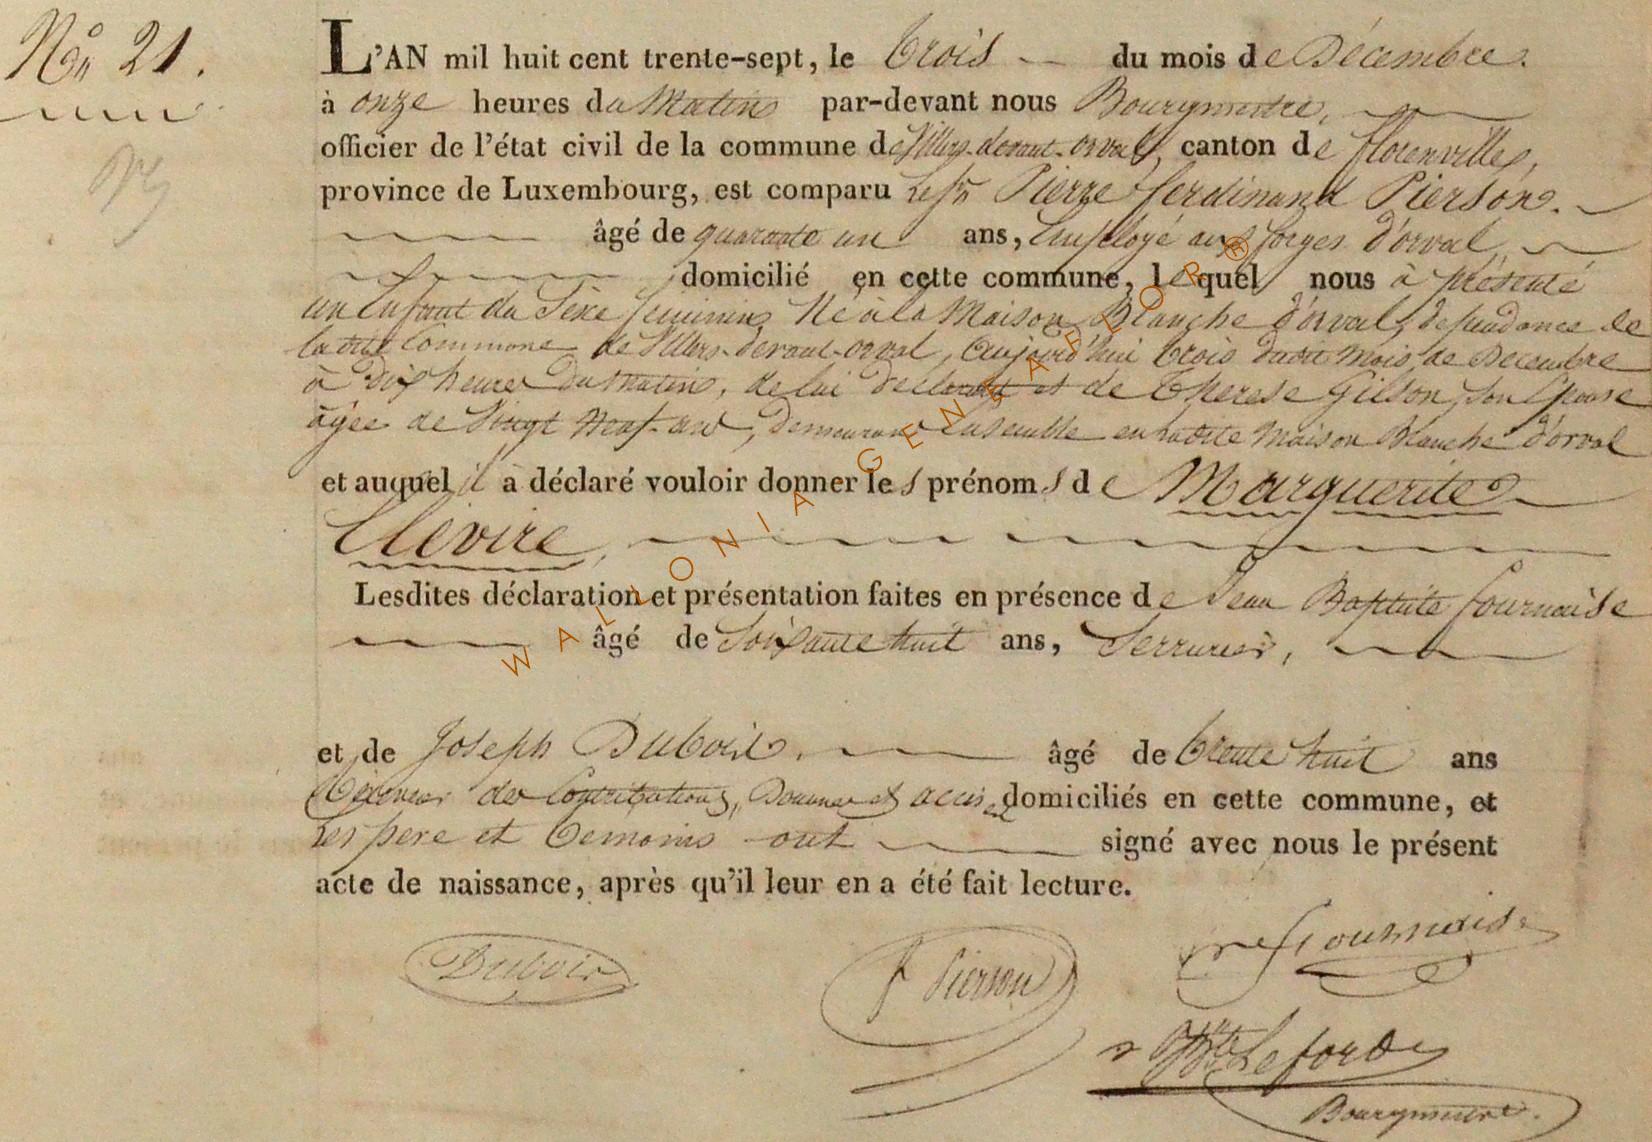 Nº 21.
L'AN mil huit cent trente-sept, le trois du mois de Décembre.
à onze heures du Matin par-devant nous Bourgmestre,
officier de l'état civil de la commune de Villers-devant-orval, canton de florenville,
province de Luxembourg, est comparu Le Sr Pierre ferdinand Pierson.
âgé de quarante un ans, Employé aux forges d'orval,
domicilié en cette commune, lequel nous à présenté
un Enfant du Sexe feminin, Né à la Maison Blanche d'orval, dependance de
la dite Commune de Villers-devant-orval, aujourd'hui trois dudit mois de Decembre
à Dix heures du matin, de lui declarant et de Therese Gilson, son Epouse
âgée de Vingt Neuf ans, demeurant Ensemble en ladite Maison Blanche d'orval
et auquel il à déclaré vouloir donner les prénoms de Marguerite
Elévire,
Lesdites déclaration et présentation faites en présence de Jean Baptiste fournaise
âgé de Soixante huit ans, Serrurier,
et de Joseph Dubois, âgé de trente huit ans
Receveur des Contributions, Douanes et accises domiciliés en cette commune, et
Les père et témoins ont signé avec nous le présent
acte de naissance, après qu'il leur en a été fait lecture.
Dubois
f Pierson
fournaise
Lefort
Bourgmestre.
WALLONIA GENEAPLOR®